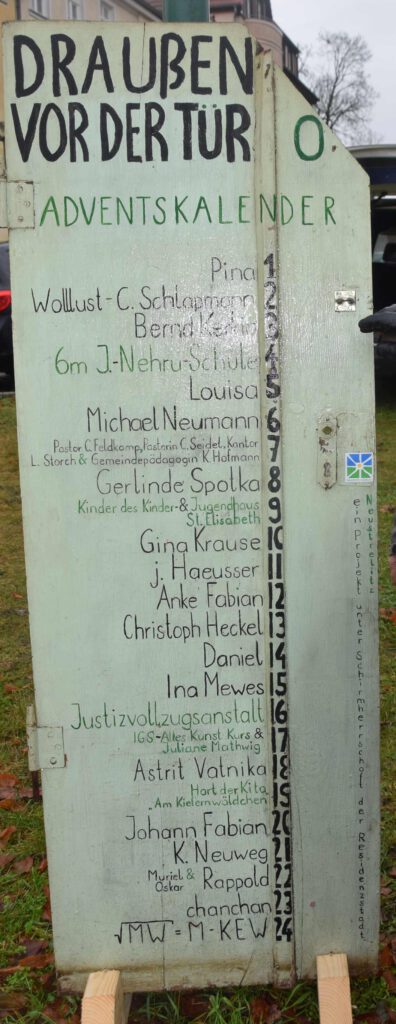 DRAUßEN
VOR DER TÜR O.
ADVENTSKALENDER
Pina 1
Wolllust - C. Schlapmann 2
Bernd 3
6m J.-Nehru-Schule 4
Louisa 5
Michael Neumann 6
Pastor C. Feldkamp, Pastorin C. Seidel, Kantor 7
L. Storch & Gemeindepädagogin K. Hofmann
Gerlinde Spolka 8
Kinder des Kinder- & Jugendhaus 9
St. Elisabeth
Gina Krause 10
j. Haeusser 11
Anke Fabian 12
Christoph Heckel 13
Daniel 14
Ina Mewes 15
Justizvollzugsanstalt 16
IGS - Altes Kunst Kurs & 17
Juliane Mathwig
Astrit Vatnika 18
Hort der Kita 19
"Am Kiefernwäldchen
Johann Fabian 20
K. Neuweg 21
Muriel & Oskar Rappold 22
chanchan 23
√MW = M - KEW 24
ein Projekt unter Schirmherrschaft der Residenzstadt
Neustrelitz